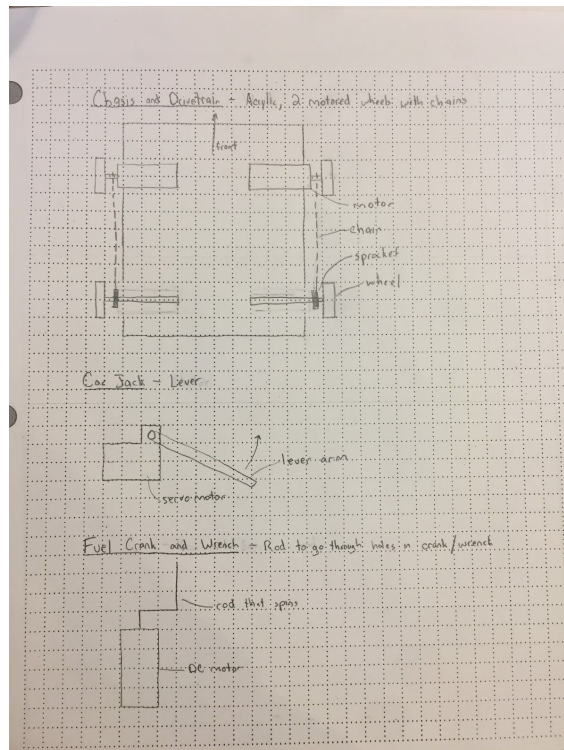 Chasis and Drivetrain - Acrylic, 2 motored wheels with chains
front
motor
chain
sprocket
wheel
Car Jack - Lever
lever arm
servo motor
Fuel Crank and Wrench - Rod to go through holes in crank/wrench
rod that spins
DC motor